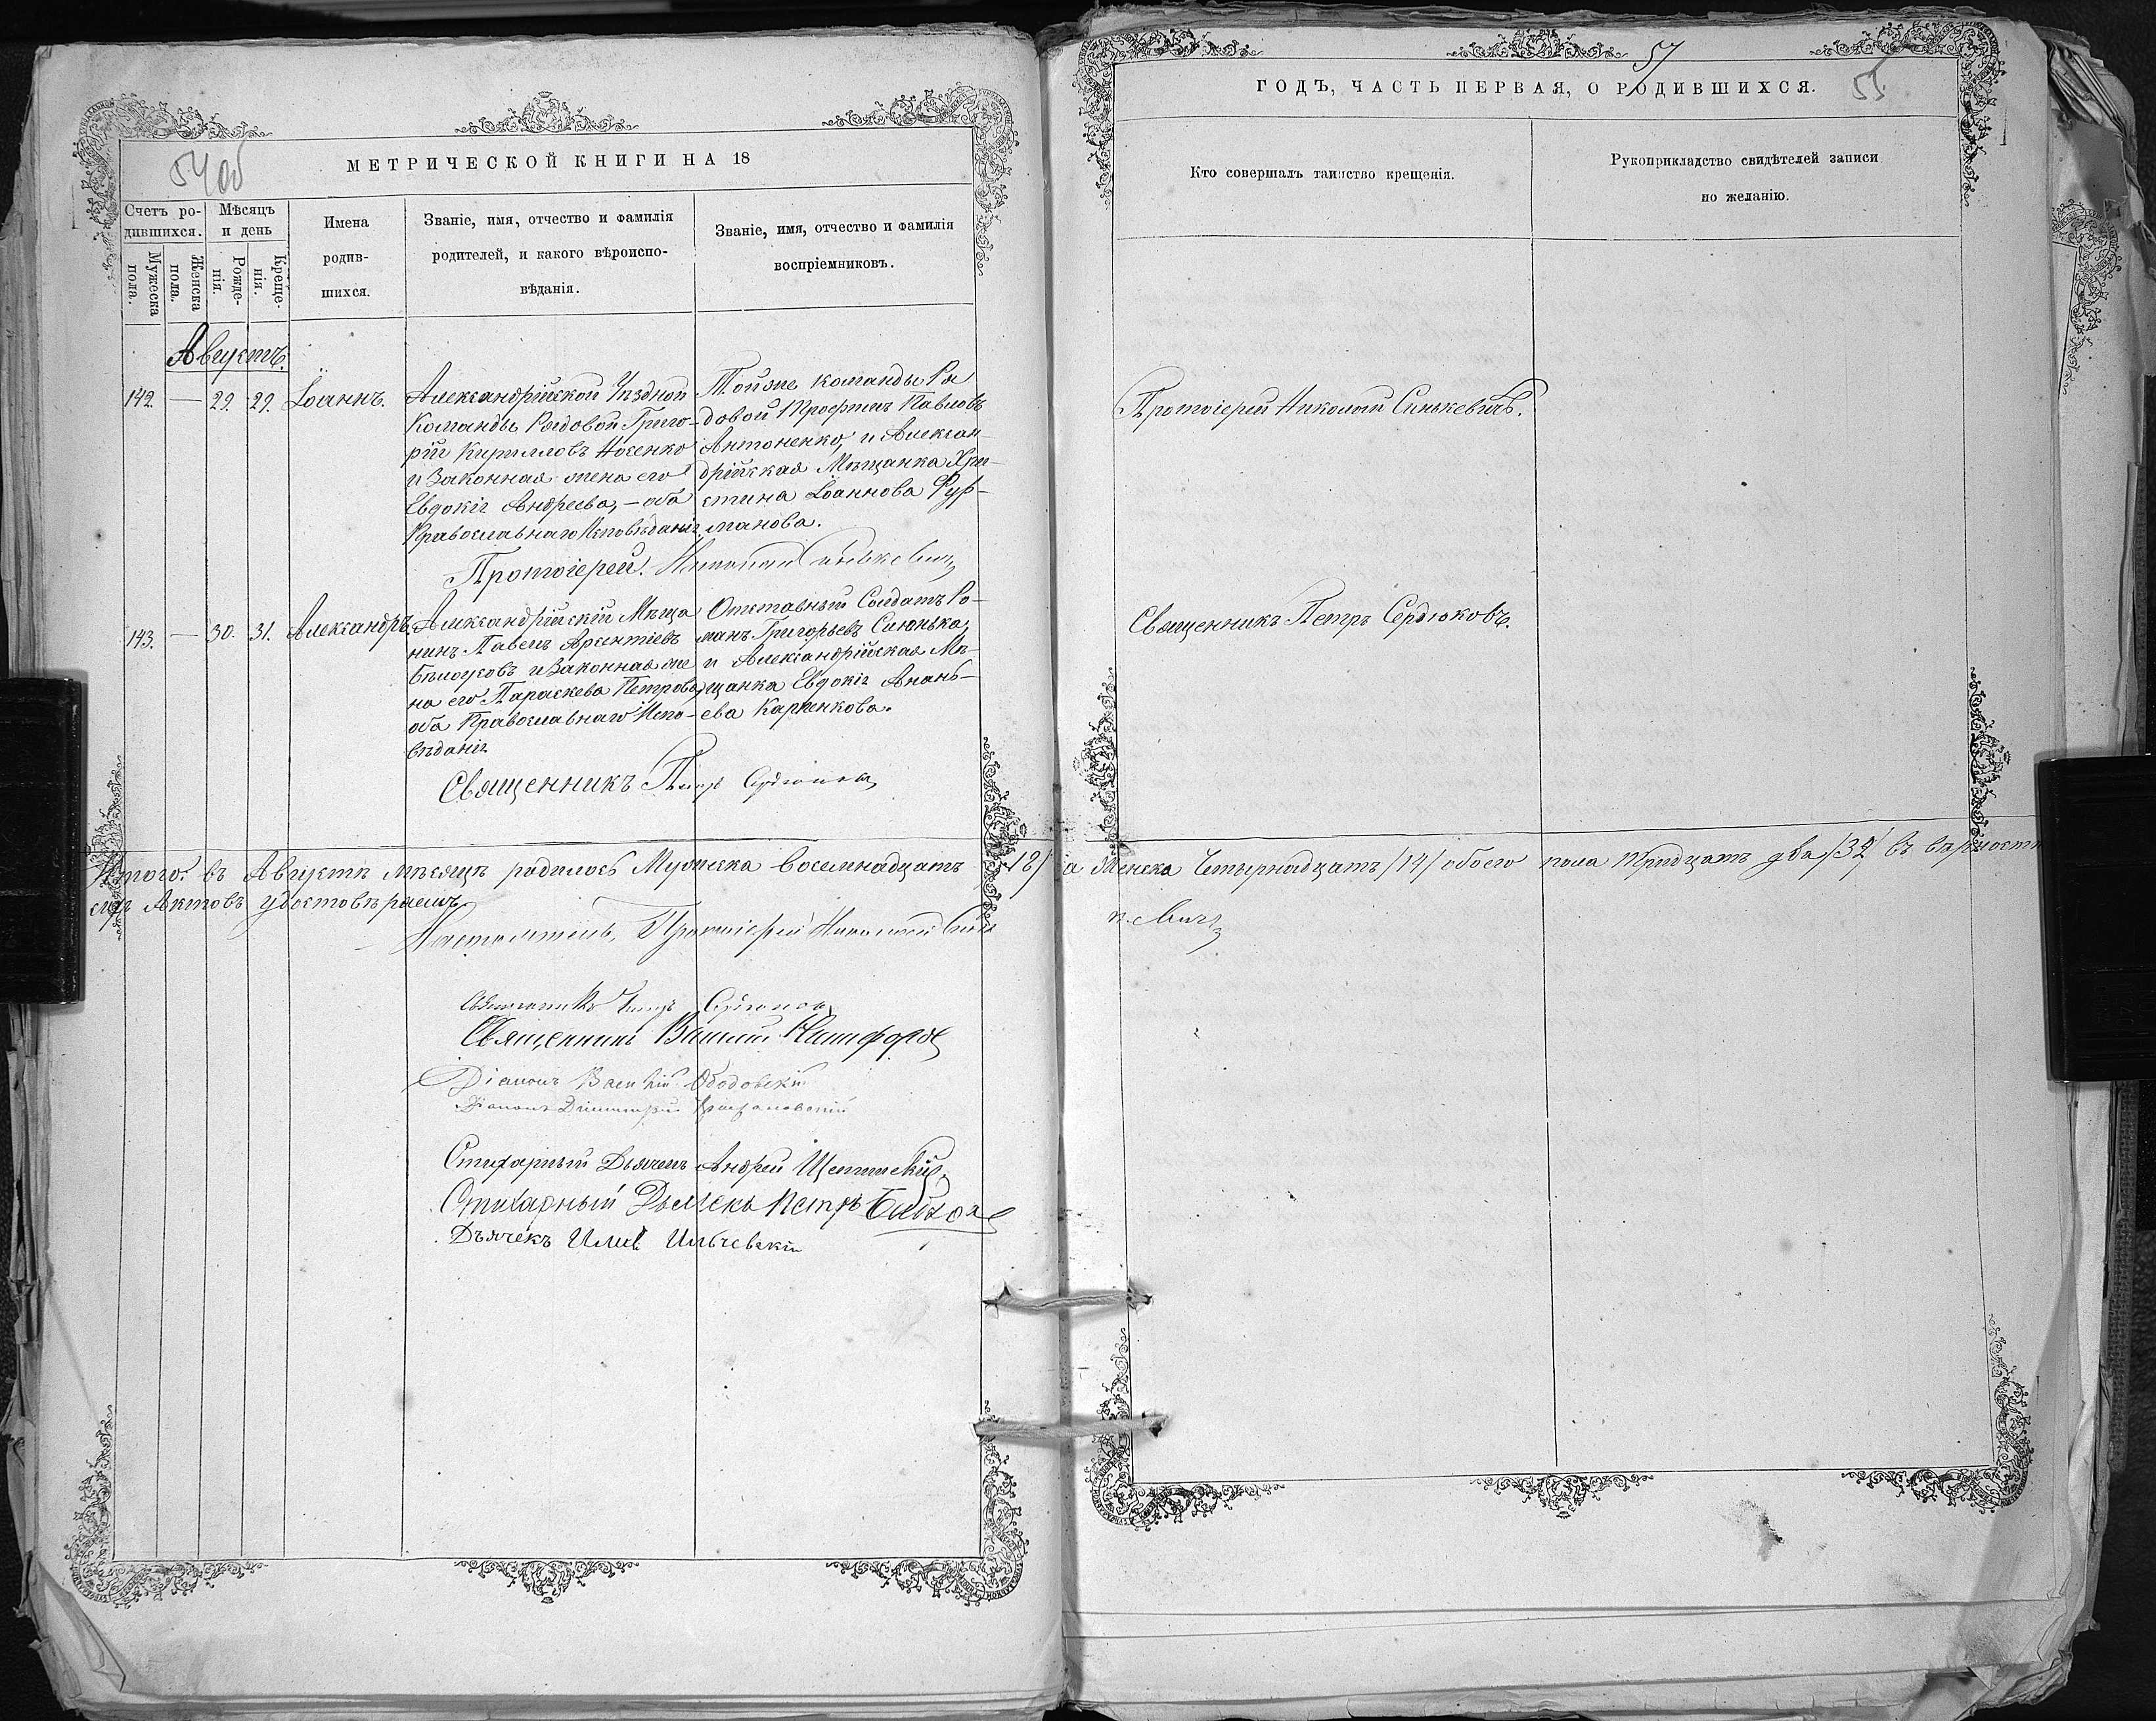 54об
МЕТРИЧЕСКОЙ КНИГИ НА 18
Счетъ ро-
дившихся.
Мѣсяцъ
и день
Мужеска
пола.
Женска
пола.
Рожде-
нія.
Креще-
нія.
Имена
родив-
шихся.
Званіе, имя, отчество и фамилія
родителей, и какого вѣроиспо-
вѣданія.
Званіе, имя, отчество и фамилія
воспріемниковъ.
Августъ.
142. — 29. 29. Іоаннъ.
Александрійской Уѣздной
Команды Рядовой Григо-
рій Кирилловъ Носенко
и Законная жена его
Евдокія Андреева, — оба
Православнаго Исповѣданія.
Тойже команды Ря
довой Трофимъ Павловъ
Антоненко, и Алексан-
дрійская Мѣщанка Хри-
стина Іоаннова Руф-
манова.
Протоіерей Николай Синькевичъ
143. — 30. 31. Александръ.
Александрійскій Мѣща
нинъ Павелъ Арсентіевъ
Бѣлоусовъ и Законная же
на его Параскева Петрова,
оба Православнаго Испо-
вѣданія
Отставный Солдатъ Ро-
манъ Григорьевъ Синька,
и Александрійская Мѣ-
щанка Евдокія Анань-
ева Карпенкова.
Священникъ Петръ Сердюковъ
Итого: въ Августѣ мѣсяцѣ родилось Мужеска восемнадцать /18/ а Женска Четырнадцать /14/ обоего пола тридцать два /32/ въ вѣрности
сихъ Актовъ удостовѣряемъ.
Настоятель, Протоіерей Николай Синькевичъ
Священникъ Петръ Сердюковъ
Священникъ Василій Никифоровъ
Діаконъ Василій Ободовскій
Діаконъ Димитрій
Стихарный Дьячекъ Андрей
Стихарный Дьячекъ Петръ
Дьячекъ Илья Ильчевскій
57
55
ГОДЪ, ЧАСТЬ ПЕРВАЯ, О РОДИВШИХСЯ.
Кто совершалъ таинство крещенія.
Рукоприкладство свидѣтелей записи
по желанію.
Протоіерей Николай Синькевичъ.
Священникъ Петръ Сердюковъ.